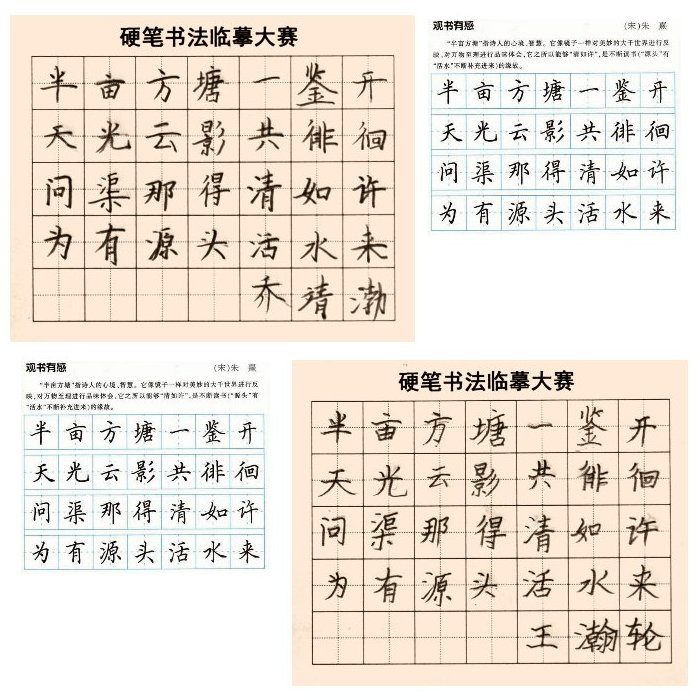 硬笔书法临摹大赛
半亩方塘一鉴开
天光云影共徘徊
问渠那得清如许
为有源头活水来
乔靖渤
观书有感
(宋)朱熹
"半亩方塘"指诗人的心境、智慧。它像镜子一样对美妙的大千世界进行反
映,对万物至理进行品味体会,它之所以能够"清如许",是不断读书("源头"有
"活水"不断补充进来)的缘故。
半亩方塘一鉴开
天光云影共徘徊
问渠那得清如许
为有源头活水来
观书有感
(宋)朱熹
"半亩方塘"指诗人的心境、智慧。它像镜子一样对美妙的大千世界进行反
映,对万物至理进行品味体会,它之所以能够"清如许",是不断读书("源头"有
"活水"不断补充进来)的缘故。
半亩方塘一鉴开
天光云影共徘徊
问渠那得清如许
为有源头活水来
硬笔书法临摹大赛
半亩方塘一鉴开
天光云影共徘徊
问渠那得清如许
为有源头活水来
王瀚轮